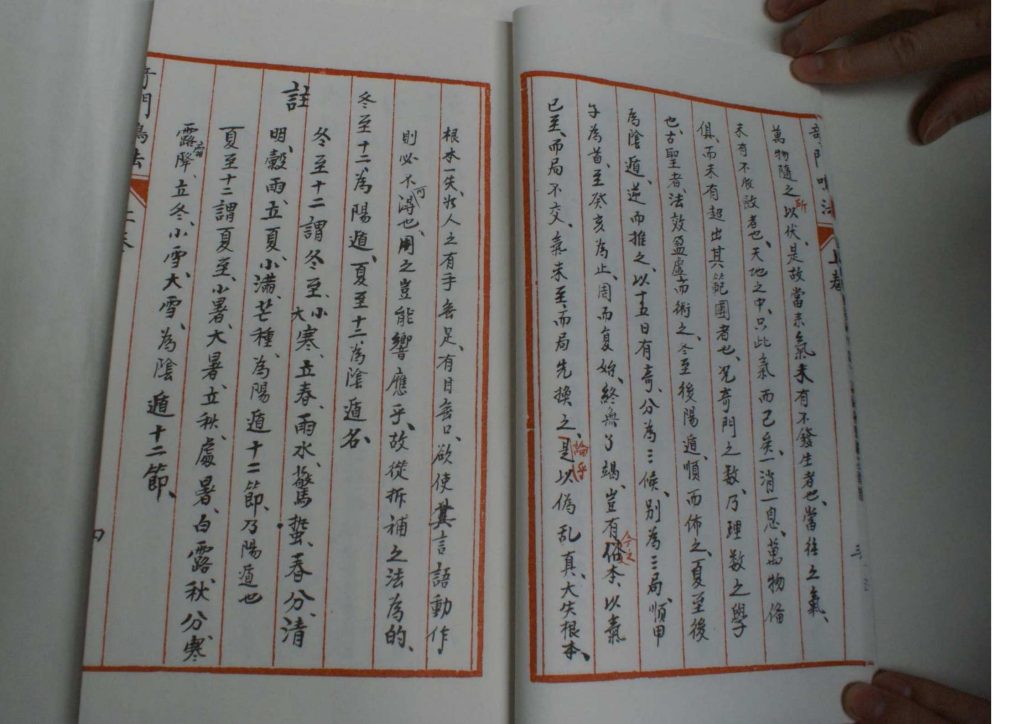 奇門鳴法 上卷
萬物隨之所以伏、是故當來之氣未有不發生者也、當往之氣、
未有不收斂者也、天地之中、只此氣而已矣、一消一息、萬物備
俱、而未有超出其範圍者也、况奇門之数、乃理數之學
也、古聖者、法效盈虛而術之、冬至後陽遁、順而佈之、夏至後
為陰遁、逆而推之、以十五日有奇、分為三候、別為三局、順甲
子為首、至癸亥為止、周而复始、終無了竭、豈有俗本、以氣
今之
已至、而局不交、氣未至、而局先換之、是以偽乱真、大失根本、
論乎
三
根本一失、如人之有手無足、有目無口、欲使其言語動作
則必不可得也、用之豈能響應乎、故從拆補之法為的、
冬至十二為陽遁、夏至十二為陰遁名、
註
冬至十二謂冬至、小寒、大寒、立春、雨水、驚蟄、春分、清
明、穀雨、立夏、小滿、芒種、為陽遁十二節、乃陽遁也
夏至十二謂夏至、小暑、大暑、立秋、處暑、白露、秋分、寒
露、霜降、立冬、小雪、大雪、為陰遁十二節、
奇門鳴法 上卷